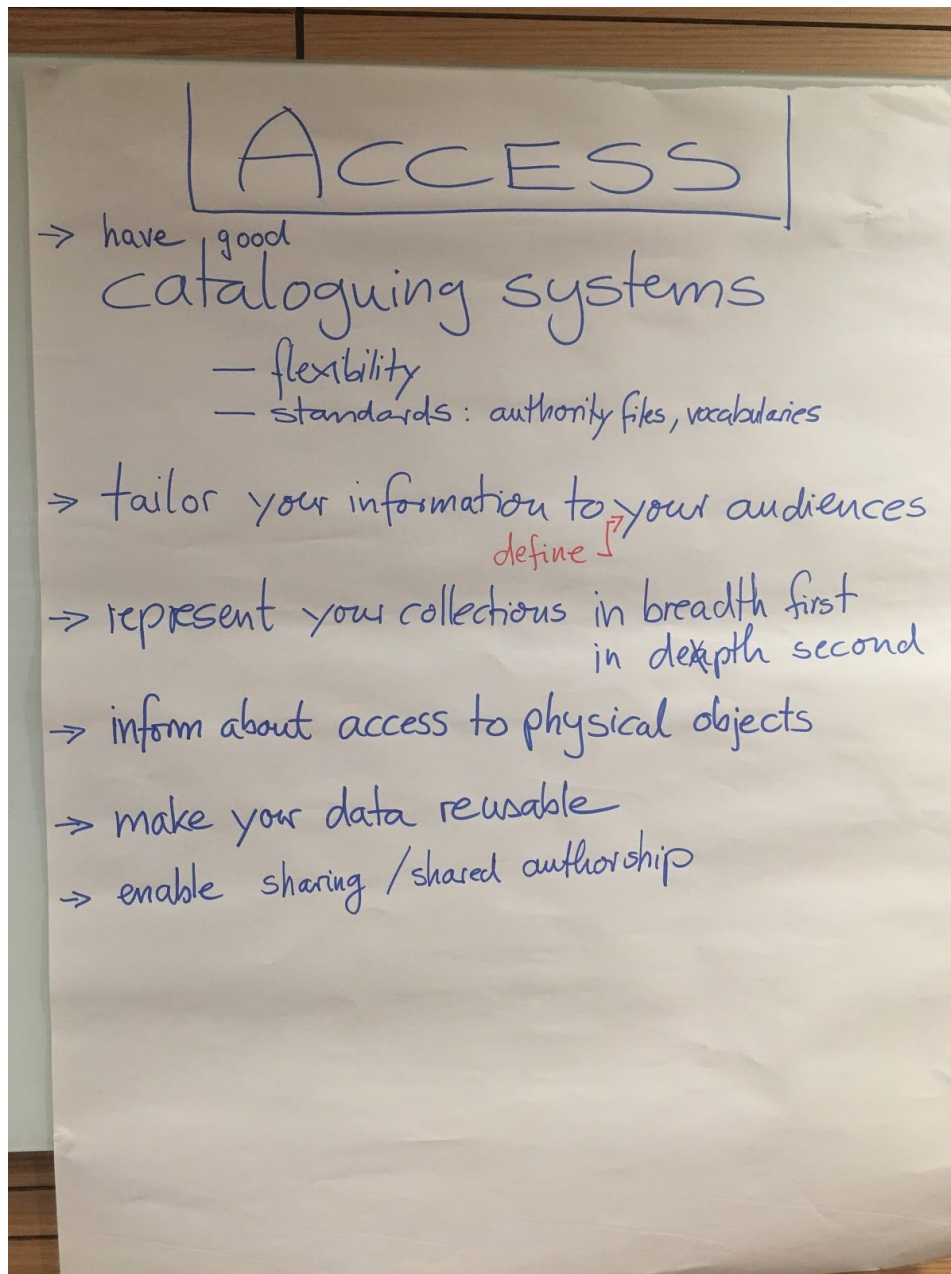 ACCESS
→ have good
cataloguing systems
— flexibility
— standards: authority files, vocabularies
→ tailor your information to your audiences
define
→ represent your collections in breadth first
in depth second
→ inform about access to physical objects
→ make your data reusable
→ enable sharing / shared authorship